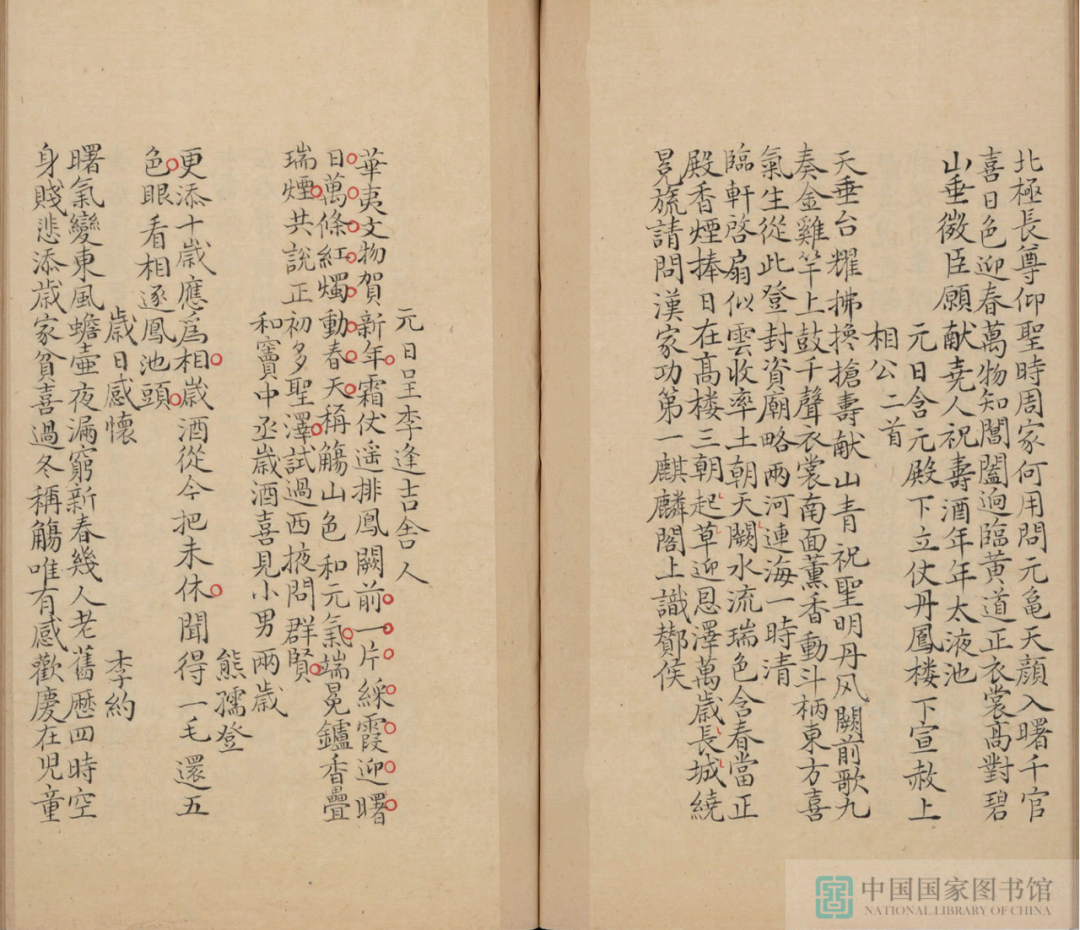 北極長尊仰聖時周家何用問元亀天顔入曙千官
喜日色迎春萬物知閶闔逈臨黄道正衣裳高對碧
山垂微臣願献堯人祝壽酒年年太液池
元日含元殿下立仗丹鳳楼下宣赦上
相公二首
天垂台耀拂搀搶壽献山青祝聖明丹风闕前歌九
奏金雞竿上鼓千聲衣裳南面薰香動斗柄東方喜
氣生從此登封資廟略兩河連海一時清
臨軒啓扇似雲收率土朝天闕水流瑞色含春當正
殿香煙捧日在高楼三朝起草迎恩澤萬歲長城繞
冕旒請問漢家功第一麒麟閣上識酇侯
元日呈李逢吉舍人
華夷文物賀新年霜仗遥排鳳闕前一片綵霞迎曙
日萬條紅燭動春天稱觴山色和元氣端冕鑪香疊
瑞煙共說正初多聖澤試過西掖問群賢
和竇中丞歲酒喜見小男兩歲
熊孺登
更添十歲應爲相歲酒從今把未休聞得一毛還五
色眼看相逐鳳池頭
歲日感懷
李約
曙氣變東風蟾壷夜漏窮新春幾人老舊歷四時空
身賤悲添歲家貧喜過冬稱觴唯有感歡慶在児童
中国国家图书馆
NATIONAL LIBRARY OF CHINA